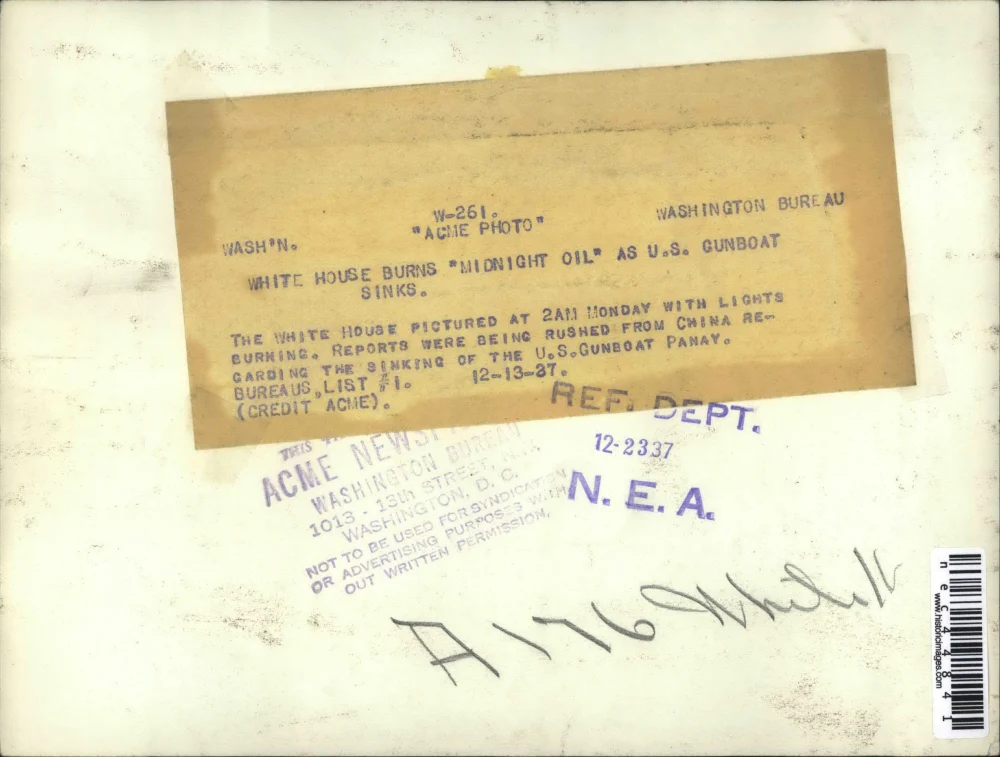 W-261.
"ACME PHOTO"
WASHINGTON BUREAU
WASH'N.
WHITE HOUSE BURNS "MIDNIGHT OIL" AS U.S. GUNBOAT
SINKS.
THE WHITE HOUSE PICTURED AT 2AM MONDAY WITH LIGHTS
BURNING. REPORTS WERE BEING RUSHED FROM CHINA RE-
GARDING THE SINKING OF THE U.S.GUNBOAT PANAY.
BUREAUS,LIST #1. 12-13-37.
(CREDIT ACME).
REF. DEPT.
12-2337
N. E. A.
THIS
ACME
WASHINGTON BUREAU
1013 - 13th STREET, N.W.
WASHINGTON, D. C.
NOT TO BE USED FOR SYNDICATION
OR ADVERTISING PURPOSES WITH-
OUT WRITTEN PERMISSION.
A 176
nec44841
www.historicimages.com